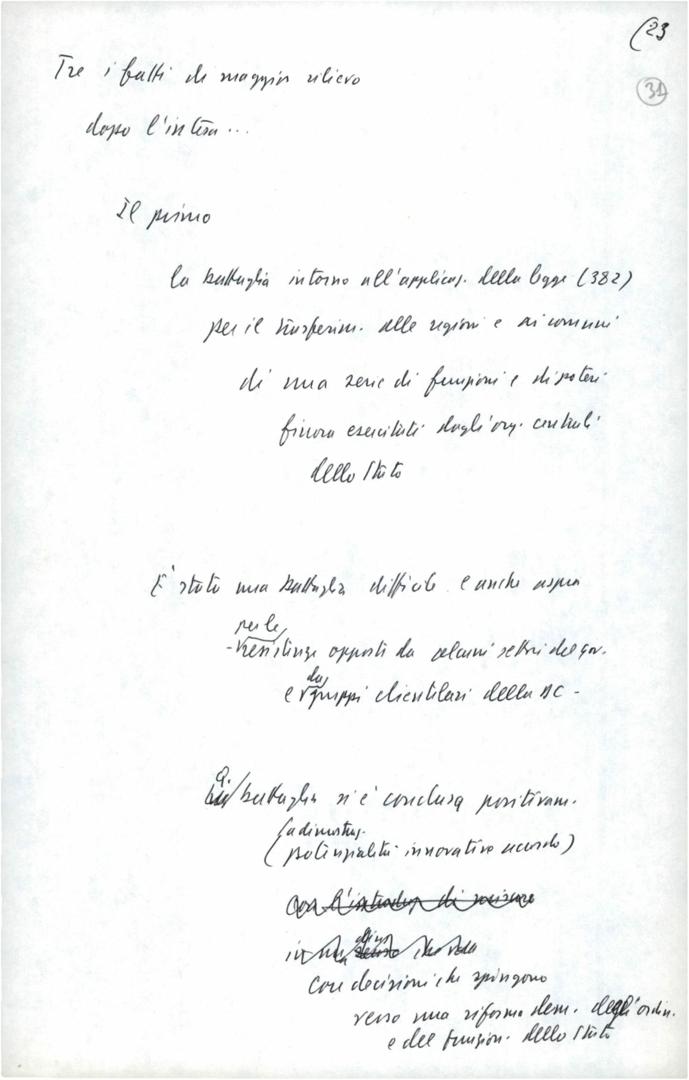 (23
31
Tre i fatti di maggior rilievo
dopo l'intesa...
Il primo
la battaglia intorno all'applicaz. della legge (382)
per il trasferim. alle regioni e ai comuni
di una serie di funzioni e di poteri
finora esercitati dagli org. centrali
dello Stato
È stata una battaglia difficile e anche aspra
per le
- resistenze opposti da alcuni settori del gov.
da
e gruppi clientelari della DC -
battaglia si è conclusa positivam.
(a dimostraz.
(potenzialità innovativa accordo)
con decisioni che spingono
verso una riforma dem. degli ordin.
e del funzion. dello Stato